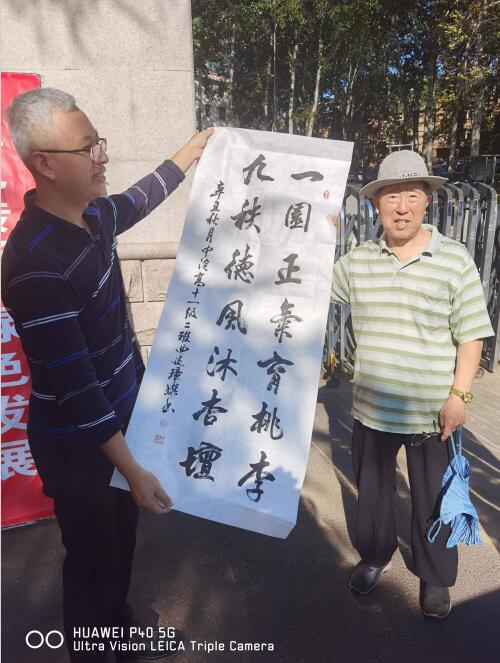 一園正氣育桃李
九秩德風沐杏壇
辛丑秋月中浣高十一级二班曲
色发展
HUAWEI P40 5G
Ultra Vision LEICA Triple Camera